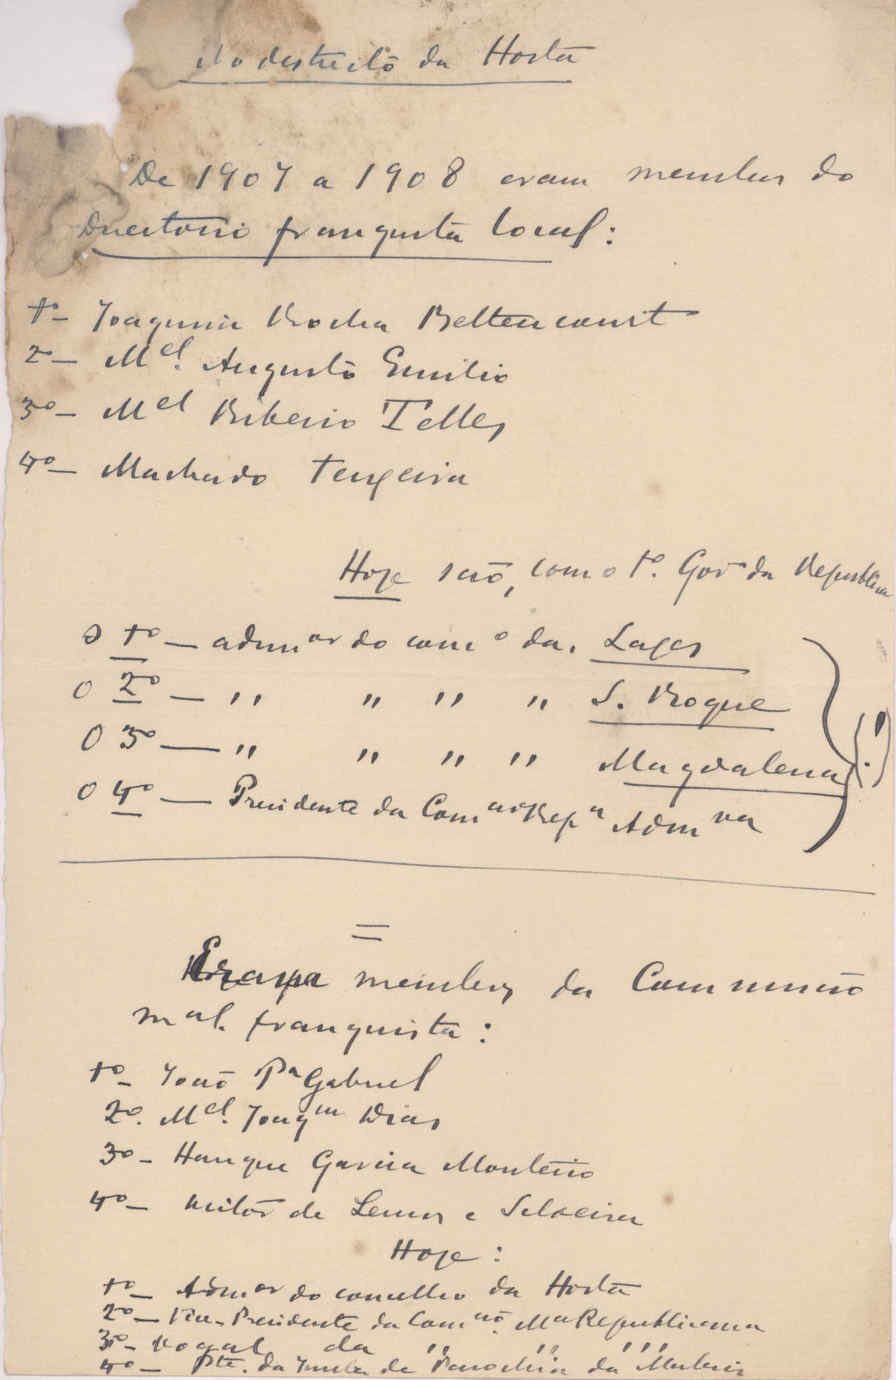 No districto da Horta
De 1907 a 1908 eram membros do
Directorio franquista local:
1º – Joaquim Rocha Bettencourt
2º – Mel. Augusto Emilio
3º – Mel Ribeiro Telles
4º – Machado Teixeira
Hoje são, com o 1º. Govº da Republica
O 1º – admnor do conco da. Lages
O 2º – ,, ,, ,, ,, S. Roque
O 3º – ,, ,, ,, ,, Magdalena
O 4º – Presidente da Comão Repa Admva
(!)
=
Eram membros da Commissão
mal. franquista:
1º – João Pa Gabriel
2º. Mel. Joaqm Dias
3º – Henrique Garcia Monteiro
4º – Victor de Lemos e Silveira
Hoje:
1º – Admor do concelho da Horta
2º – Vice-Presidente da Comão Ma Republicana
3º – Vogal da ,, ,, ,,,
4º – Pte. da Junta de Parochia da Matriz